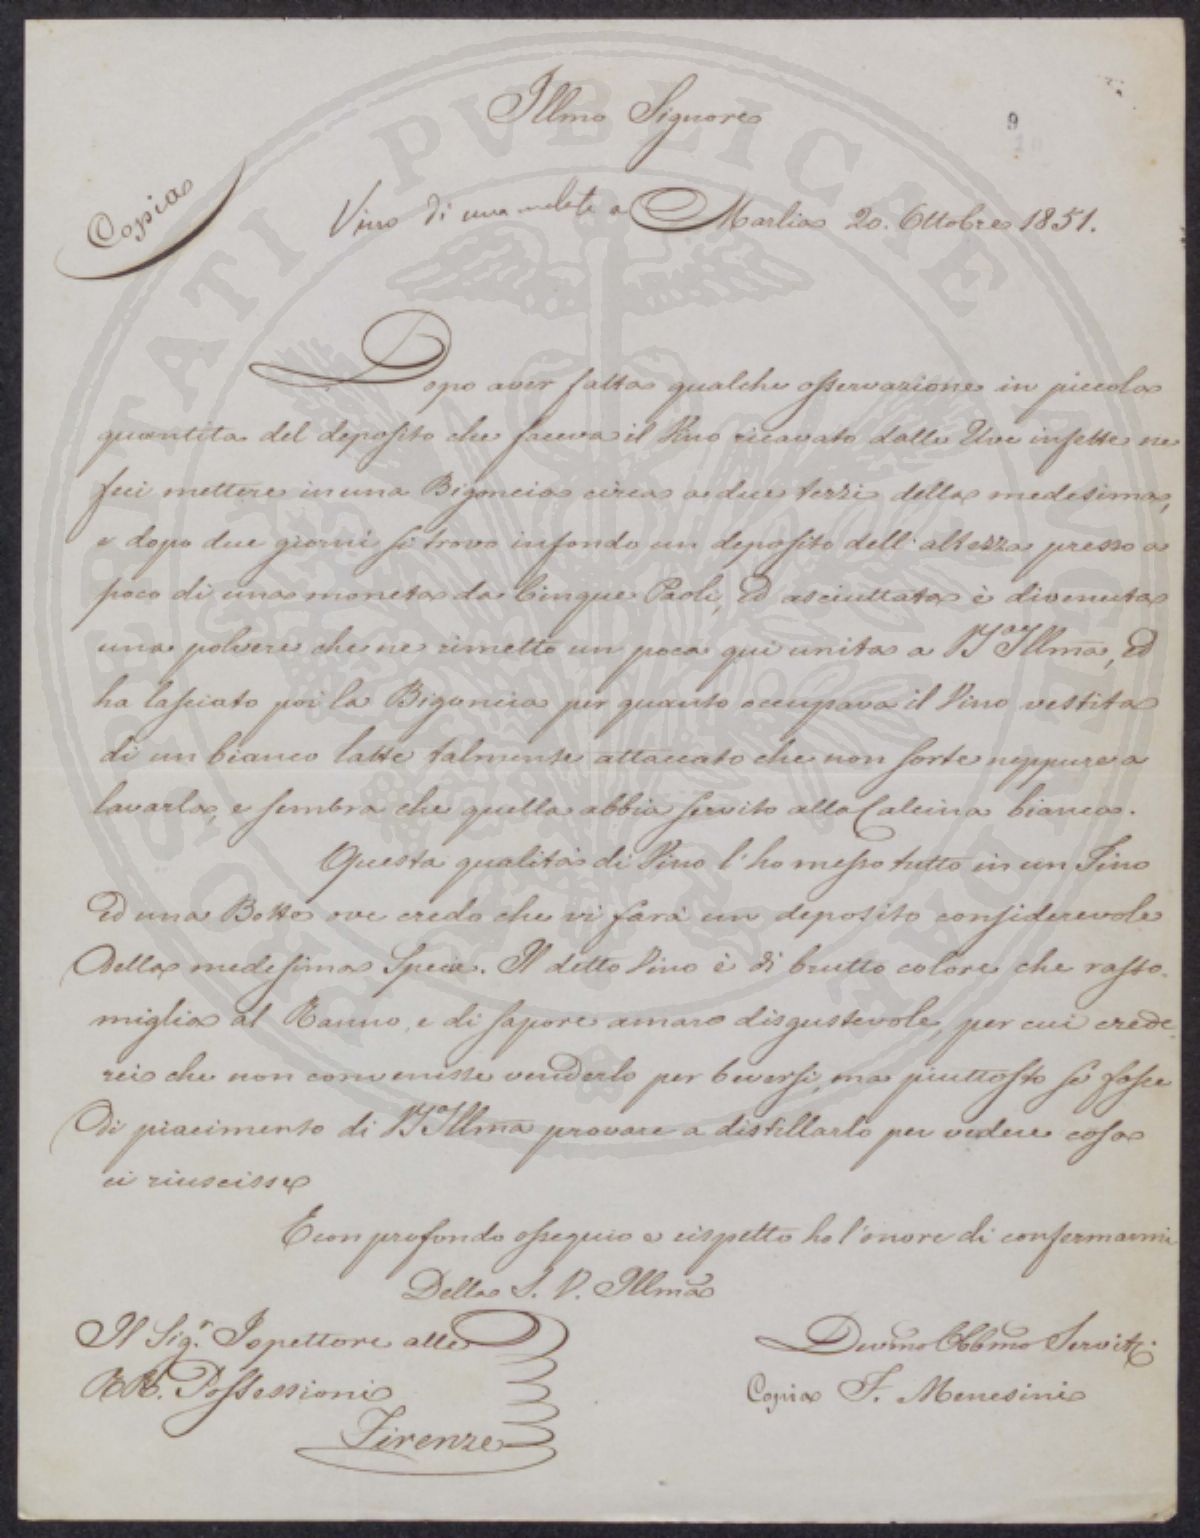 Illmo Signore
9
10
Copia
Vino di uva malata a Marlia 20. Ottobre 1851.
Dopo aver fatta qualche osservazione in piccola
quantita del deposito che faceva il Vino ricavato dalle Uve infette ne
feci mettere in una Bigoncia circa a due terzi della medesima,
e dopo due giorni si trovò infondo un deposito dell'altezza presso a
poco di una moneta da Cinque Paoli, ed asciuttata è divenuta
una polvere che ne rimetto un poca qui unita a V.ª Illma, ed
ha lasciato poi la Bigoncia per quanto occupava il Vino vestita
di un bianco latte talmente attaccato che non sorte neppure a
lavarla, e sembra che quella abbia servito alla Calcina bianca.
Questa qualità di Vino l'ho messo tutto in un Tino
ed una Botte ove credo che vi farà un deposito considerevole
della medesima Specie. Il detto Vino è di brutto colore che rasso-
miglia al Ranno, e di sapore amaro disgustevole, per cui crede-
rei che non convenisse venderlo per beversi, ma piuttosto se fosse
di piacimento di V.ª Illma provare a distillarlo per vedere cosa
ci riuscisse
E con profondo ossequio e rispetto ho l'onore di confermarmi
Della S. V. Illma
Il Sig.r Ispettore alle
RR. Possessioni
Firenze
Devmo Obbmo Servit.
Copia F. Menesini
SOCIETATI PVBLICAE